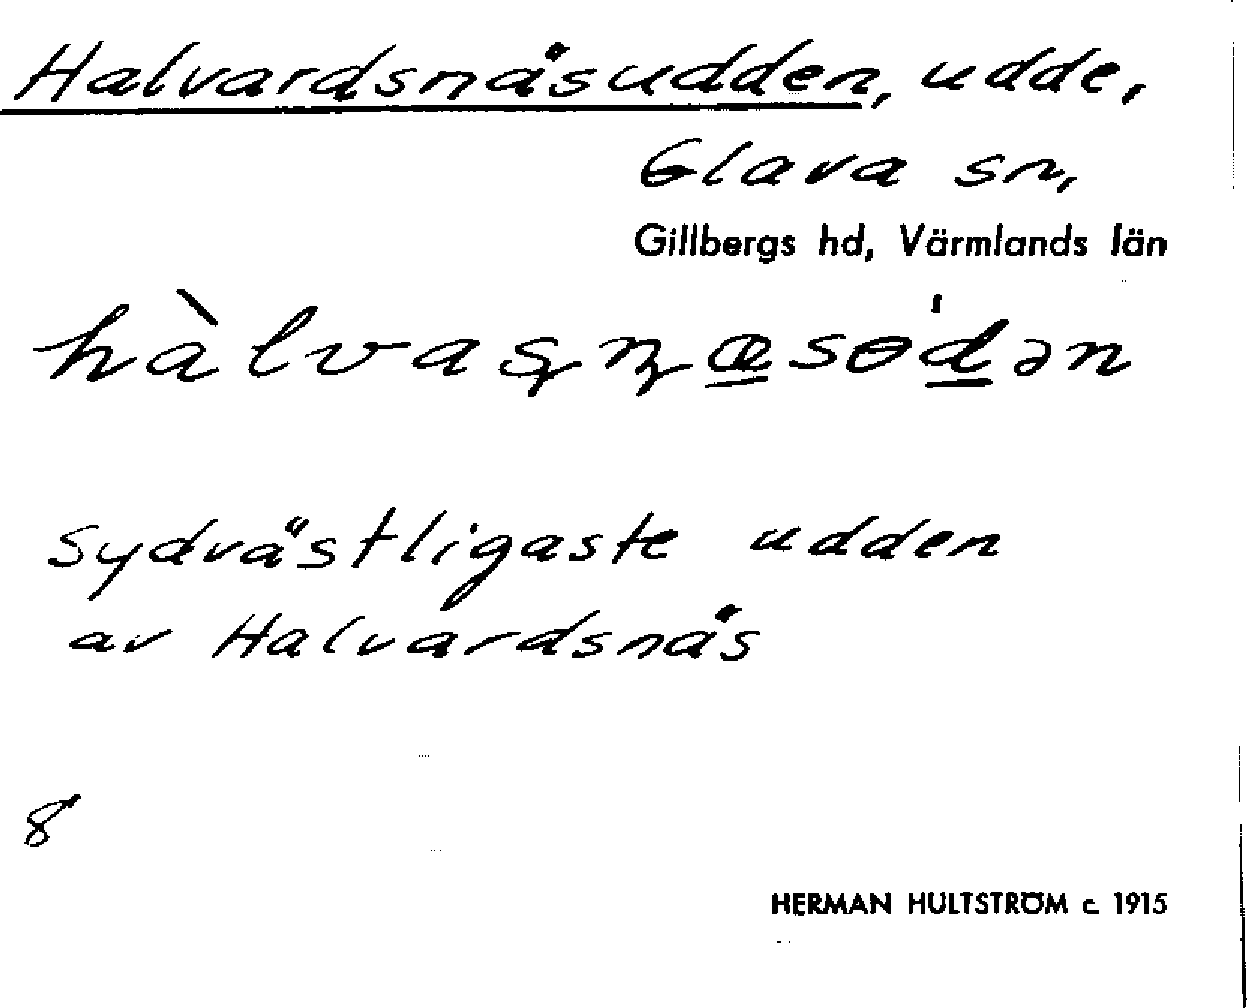 Halvardsnäsudden, udde,
Glava sn,
Gillbergs hd, Värmlands län
hàlvaʂɳæ̱sɵḏˈən
sydvästligaste udden
av Halvardsnäs
8
HERMAN HULTSTRÖM c. 1915